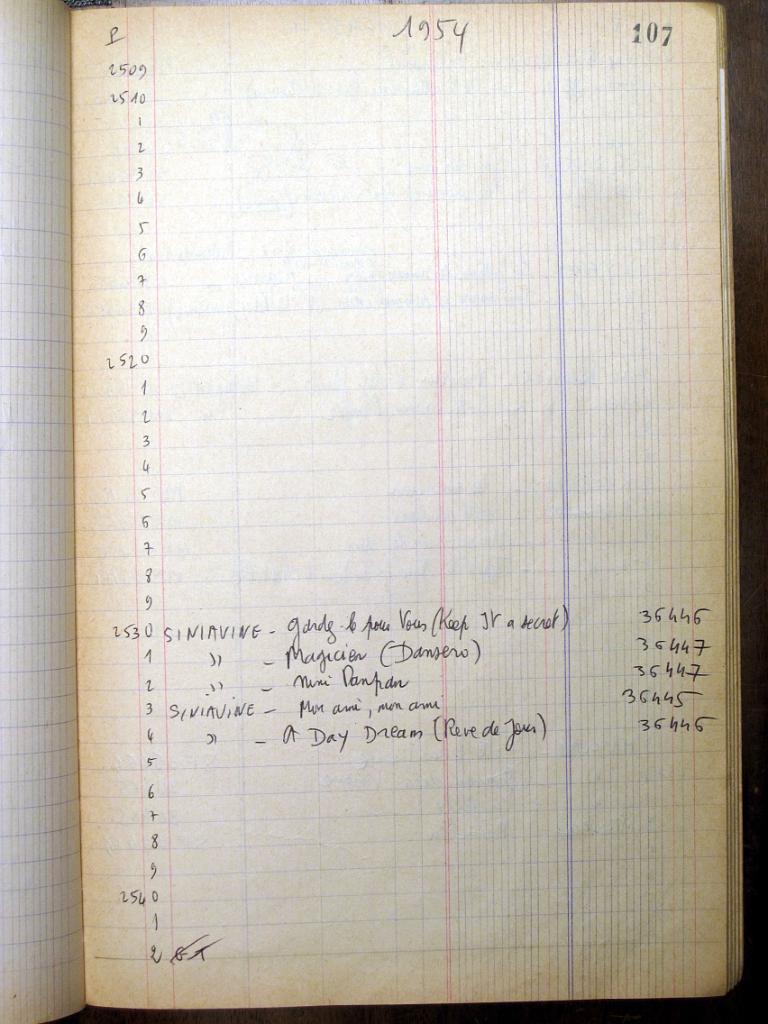 P 1954 107
2509
2510
1
2
3
4
5
6
7
8
9
2520
1
2
3
4
5
6
7
8
9
2530 SINIAVINE - Gardez-le pour Vous (Keep It a secret) 36446
1 " - Magicien (Dansero) 36447
2 " - Nini Panpan 36447
3 SINIAVINE - Mon ami, mon ami 36445
4 " - A Day Dream (Reve de Jour) 36446
5
6
7
8
9
2540
1
2